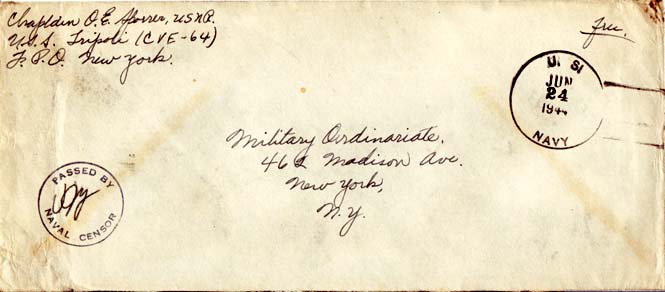 Chaplain O.E. Sporrer, USNR.
U.S.S. Tripoli (CVE-64)
F.P.O. New York.
Free.
U. S.
JUN
24
1944
NAVY
Military Ordinariate.
462 Madison Ave.
New York,
N.Y.
PASSED BY
NAVAL CENSOR